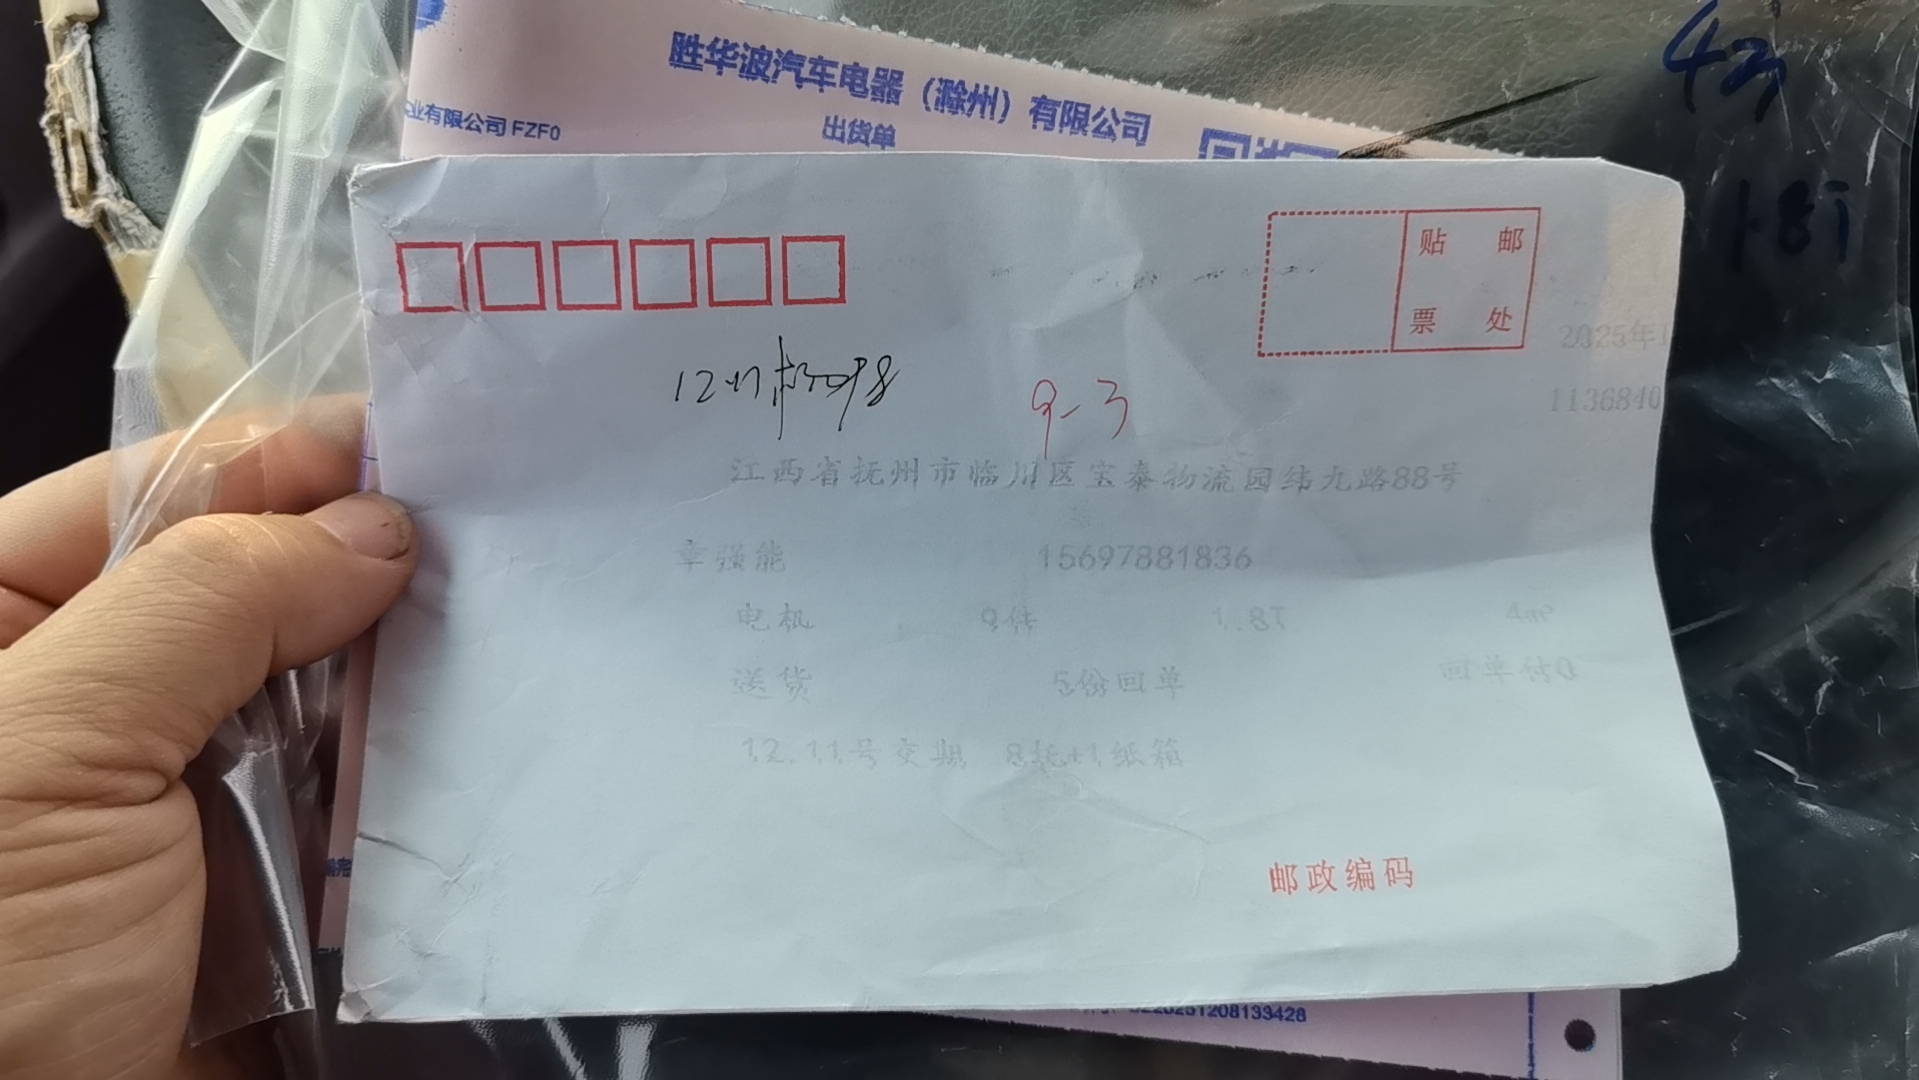 胜华波汽车电器（滁州）有限公司
业有限公司 FZF0
出货单
贴 邮
票 处
2025年1
1136840
9-3
江西省抚州市临川区宝泰物流园纬九路88号
章强能 15697881836
电机 9件 1.8T 4m³
送货 5份回单 回单付0
12.11号交期 8托+1纸箱
邮政编码
20251208133428